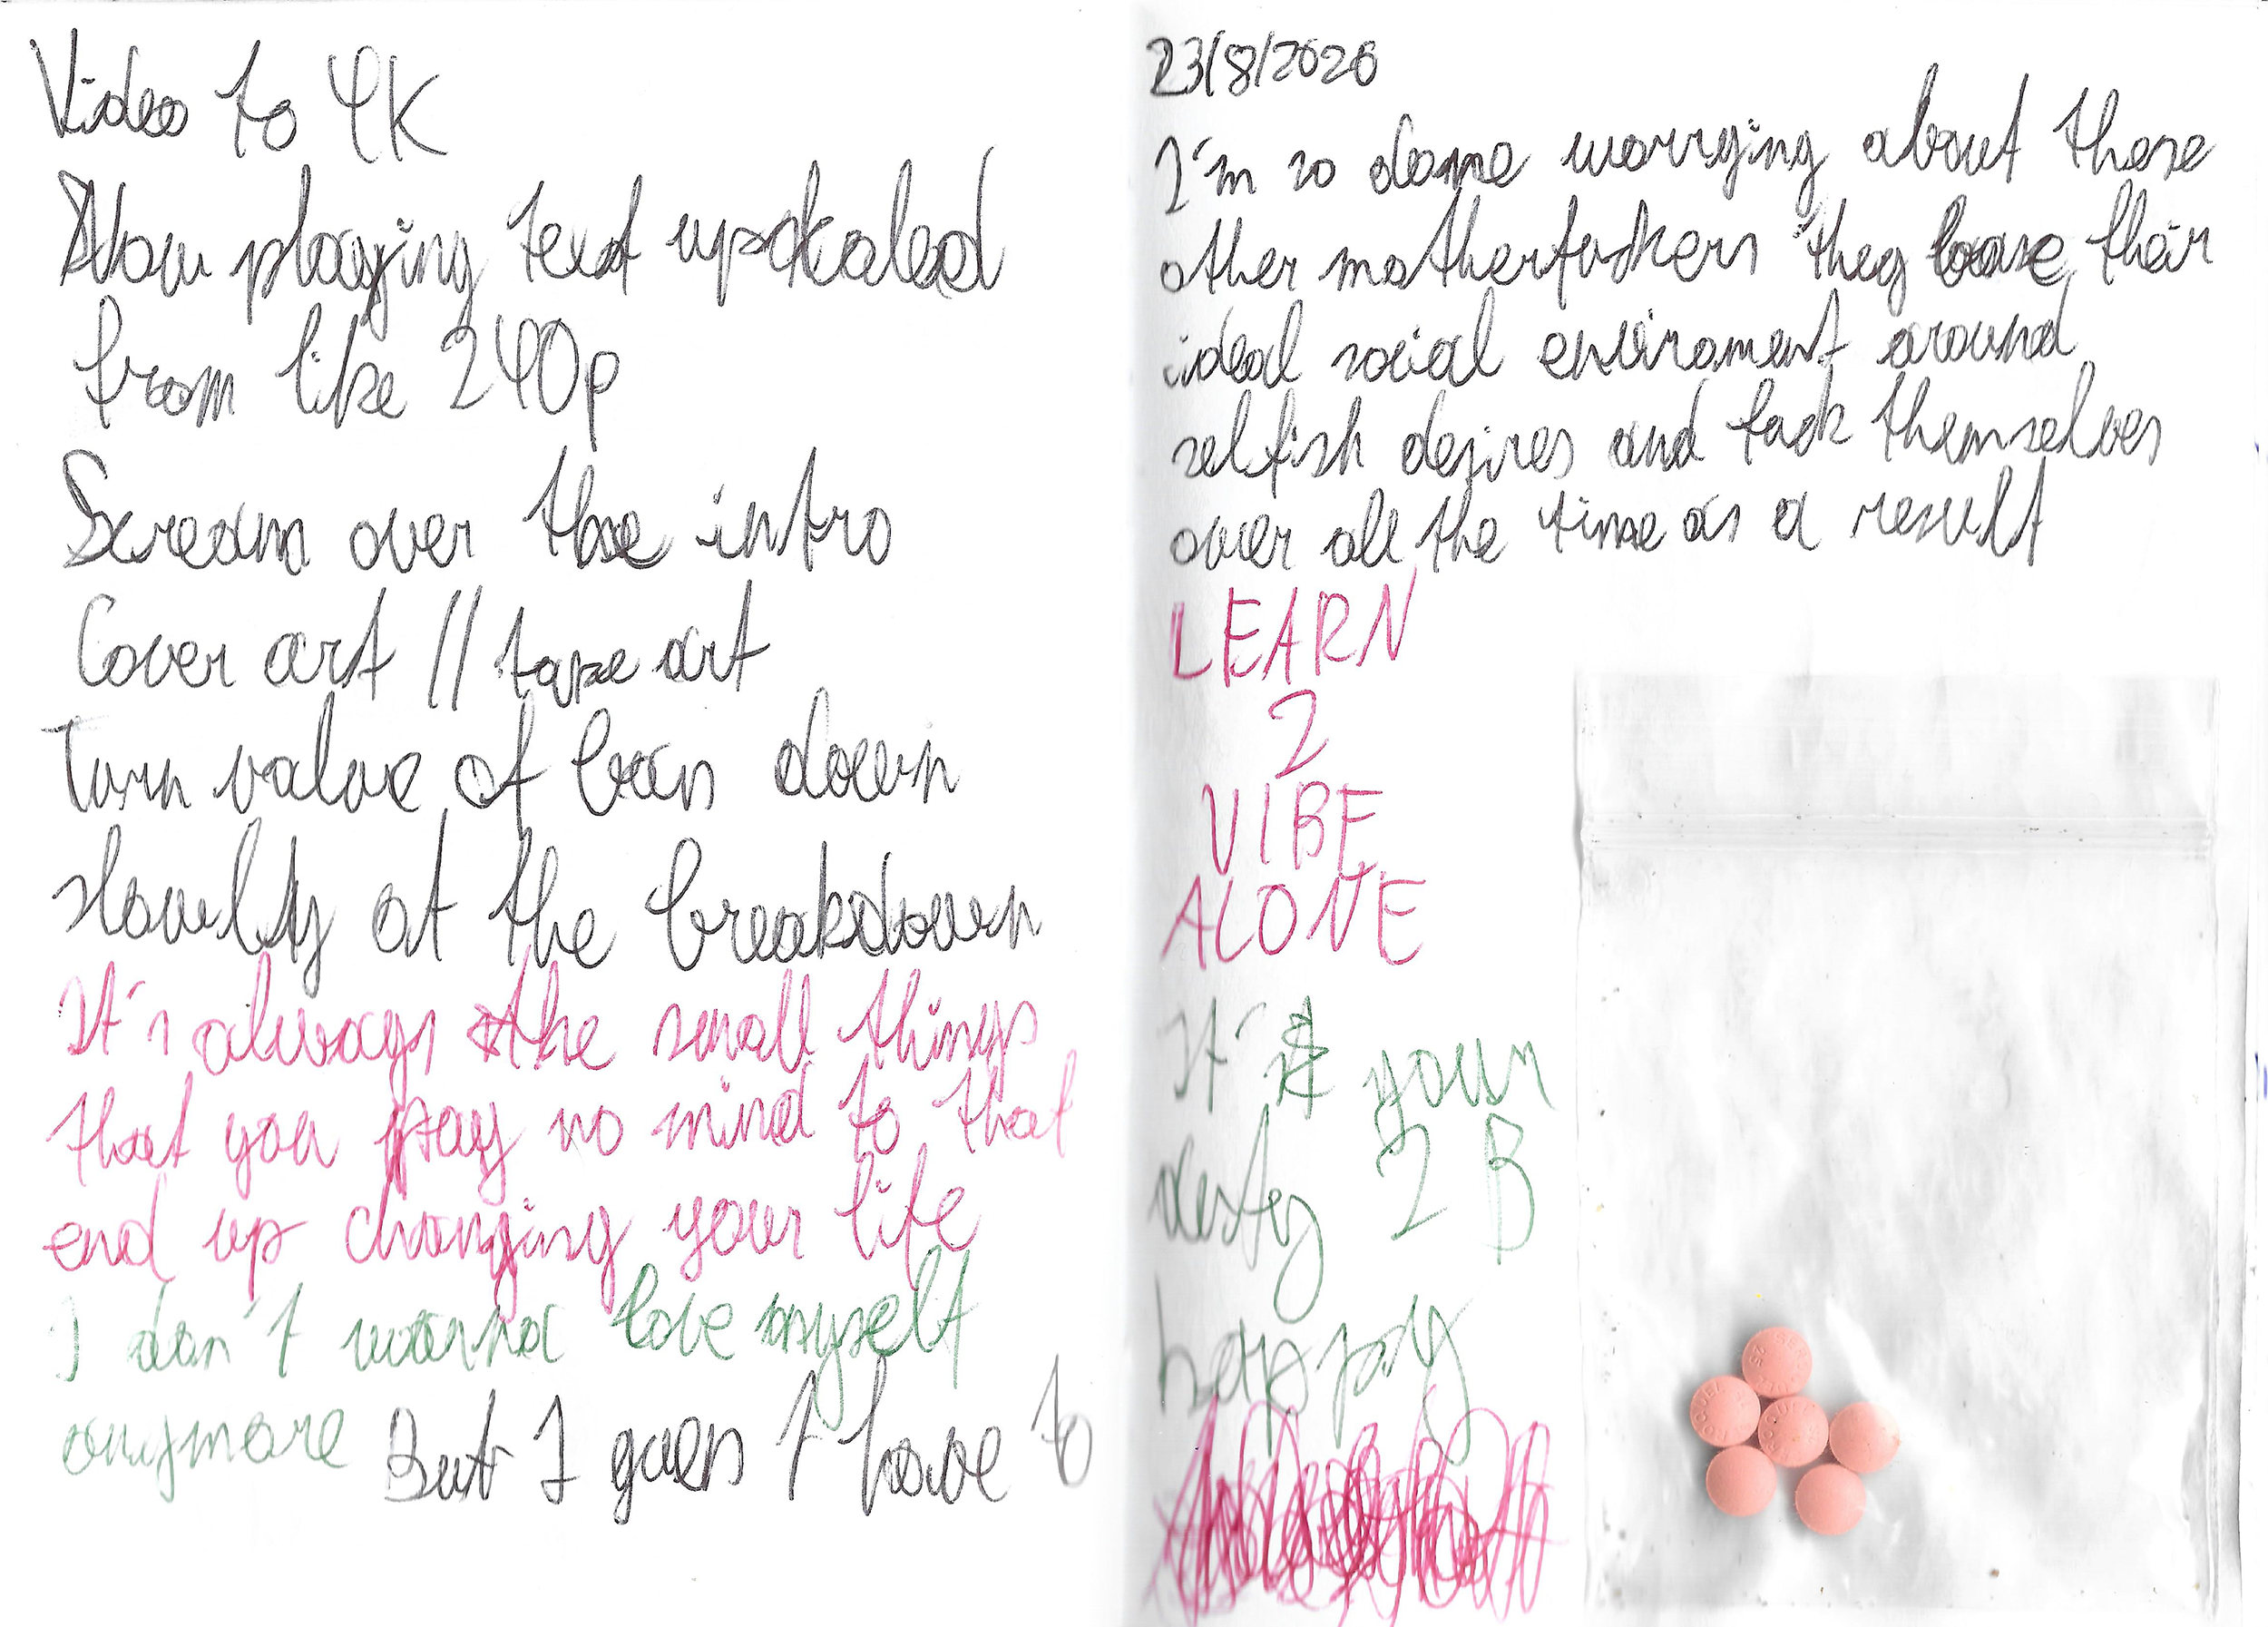 Video to 4K
Now playing text upscaled
from like 240p
Scream over the intro
Cover art // tape art
Turn value of bass down
slowly at the breakdown
It's always the small things
that you pay no mind to that
end up changing your life
I don't wanna love myself
anymore But I guess I have to
23/8/2020
I'm so done worrying about these
other motherfuckers they base their
ideal social enviroment around
selfish desires and fuck themselves
over all the time as a result
LEARN
2
VIBE
ALONE
It's your
duty 2 B
happy
SEROQUEL
25
SEROQUEL
SEROQUEL
25